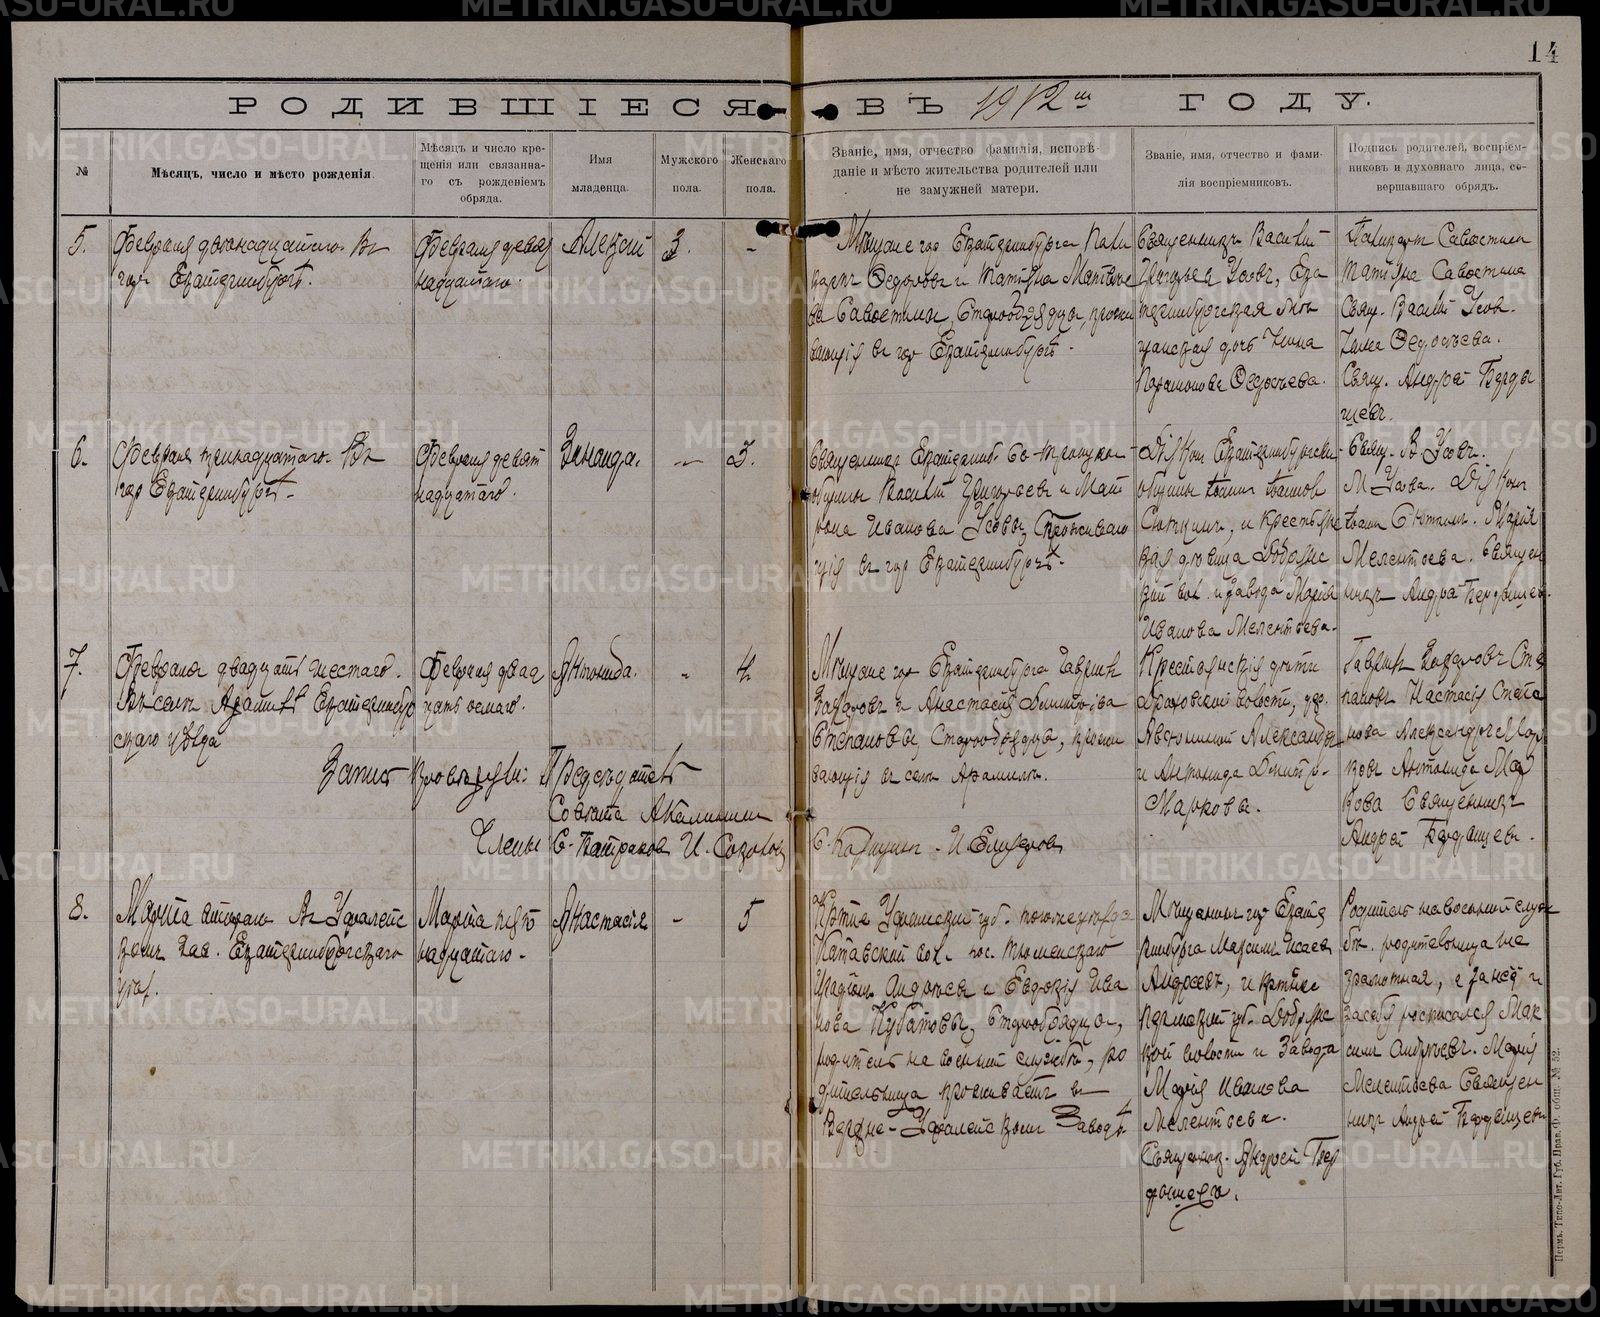 14
РОДИВШІЕСЯ ВЪ 1912 ГОДУ.
№
Мѣсяцъ, число и мѣсто рожденія.
Мѣсяцъ и число кре-
щенія или связанна-
го съ рожденіемъ
обряда.
Имя
младенца.
Мужского
пола.
Женскаго
пола.
Званіе, имя, отчество фамилія, исповѣ-
даніе и мѣсто жительства родителей или
не замужней матери.
Званіе, имя, отчество и фами-
лія воспріемниковъ.
Подпись родителей, воспріем-
никовъ и духовнаго лица, со-
вершавшаго обрядъ.
5.
Февраля двенадцатаго. Въ
гор. Екатеринбургѣ.
Февраля девят
надцатаго.
Алексѣй
3.
-
Мещане гор Екатеринбурга
Федоровъ и Матвѣе
ва Савостины, Старообрядцы, прожи
вающія въ гор Екатеринбургѣ.
Священникъ Василій
Усовъ, Ека
теринбургская мѣ
щанская дочь
Федосѣева.
Савостин
Савостина
Свящ. Василій Усов.
Федосѣева.
Свящ. Андрей Берды
шевъ.
6.
Февраля тринадцатаго. Въ
гор Екатеринбургѣ.
Февраля девят
надцатаго.
Зинаида.
-
3.
Священникъ Екатеринб. Св-Троицкой
общины Василій Григорьевъ и Мат
рона Иванова Усовы, Проживаю
щія въ гор Екатеринбургѣ.
Діяконъ Екатеринбургской
общины Іоаннъ Іоаннов
Сюткинъ, и Крестьянс
кая дѣвица Добрянс
кой вол. и завода Марія
Иванова Мелентьева.
Свящ. В Усовъ.
М Усова. Діяконъ
Іоаннъ Сюткинъ. Марія
Мелентьева. Священ
никъ Андрей Бердышев.
7.
Февраля двадцать шестаго.
Въ селѣ Арамилѣ Екатеринбур
скаго уѣзда
Февраля двад
цать осмаго.
Антонида.
-
4
Мещане гор Екатеринбурга Гаврилъ
Захаровъ и Анастасія
Степановы, Старообрядцы, прожи
вающія въ селѣ Арамили.
Крестьянскія дѣти
волости,
Александръ
и Антонида Дмитр.
Марковы.
Гаврилъ Захаровъ Сте
пановъ Настасія Степа
нова Александръ Мар
ковъ Антонида Мар
кова Священникъ
Андрей Бердышевъ.
Запись провѣряли: Предсѣдатель
Совѣта А Калинин
Члены С. Патраков И. Созонов
И Елизаров
8.
Марта втораго Въ Уфалейс
комъ зав. Екатеринбургскаго
уѣз.
Марта пят
надцатаго.
Анастасія
-
5
Кр-не Уфимской губ.
Катавской вол. пос. Тюменскаго
и Евдокія Ива
нова Кубатовы, Старообрядцы,
родитель на военной службѣ, ро
дительница проживаетъ въ
Верхне-Уфалейскомъ Заводѣ.
Мещанинъ гор Екате
ринбурга Максимъ Исаев
Андреевъ, и кр-нка
Пермской губ. Добрянс
кой волости и Завода
Марія Иванова
Мелентьева.
Священник. Андрей Бер
дышевъ.
Родитель на военной служ
бѣ. родительница не
грамотная, а за неё и
за себя росписался Мак
симъ Андреевъ. Марія
Мелентьева Священ
никъ Андрей Бердышевъ
Пермь. Типо-Лит. Губ. Прав. Ф. общ. № 52.
METRIKI.GASO-URAL.RU